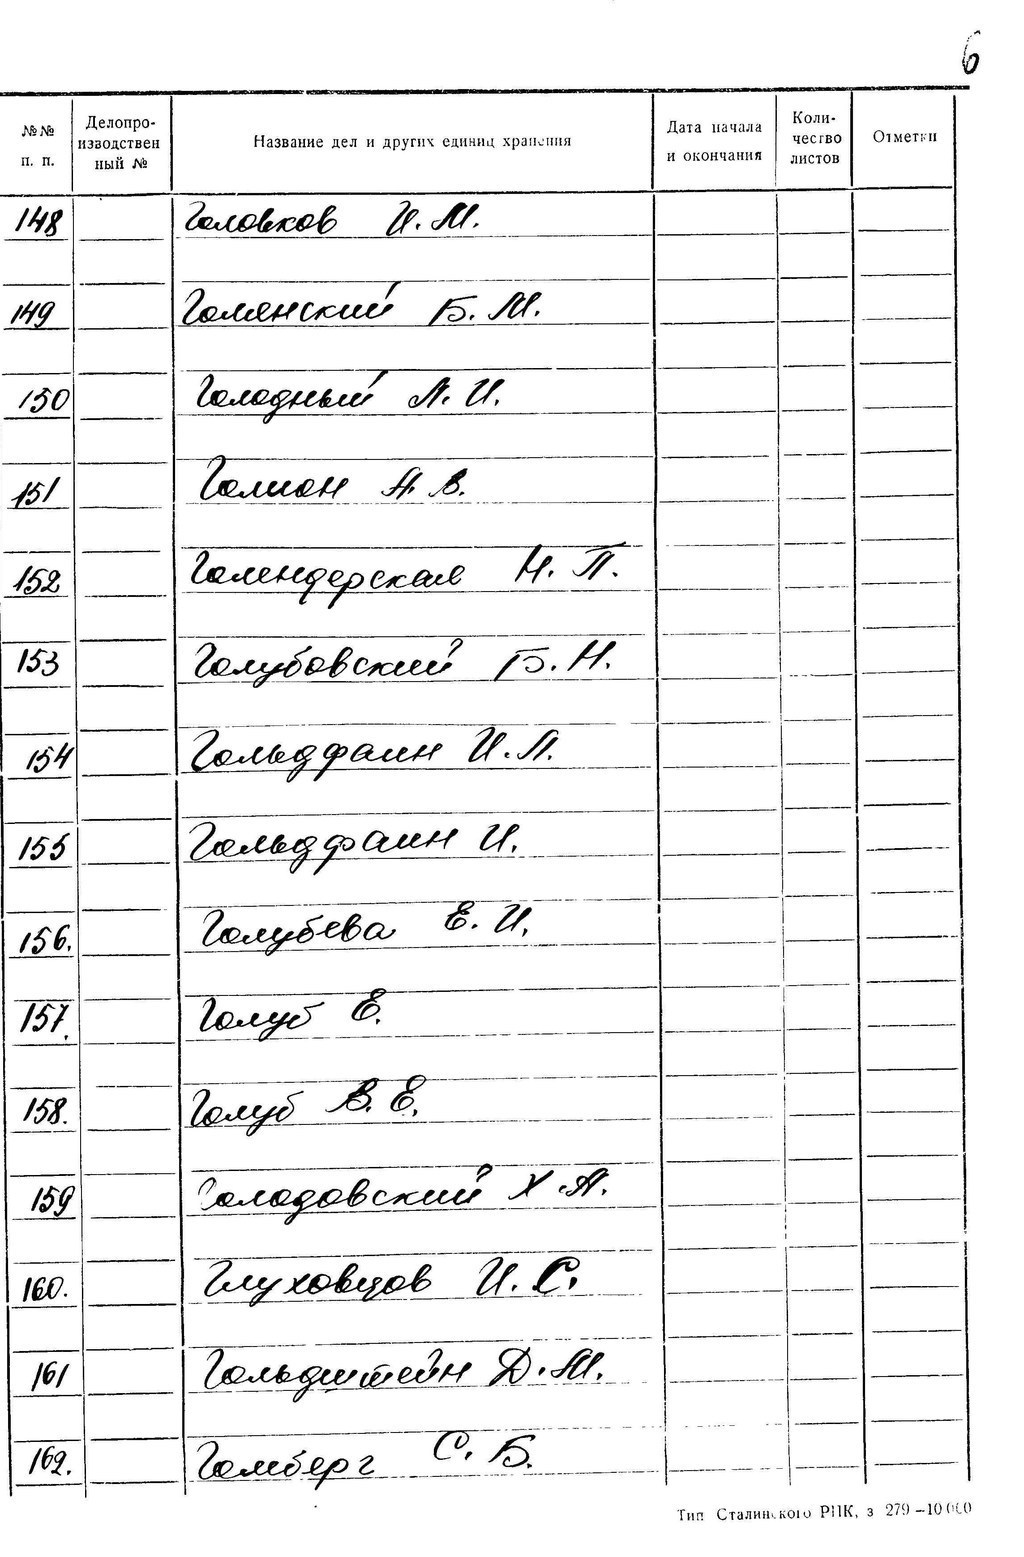 6
№№ п. п.
Делопро-
изводствен
ный №
Название дел и других единиц хранения
Дата начала
и окончания
Коли-
чество
листов
Отметки
148 Головков И. М.
149 Голянский Б. М.
150 Голодный А. И.
151 Голион А. В.
152 Голендерская Н. П.
153 Голубовский Б. Н.
154 Гольдфаин И. Л.
155 Гольдфаин И.
156. Голубева Е. И.
157. Голуб Е.
158. Голуб В. Е.
159 Голодовский Х. А.
160. Глуховцов И. С.
161 Гольдштейн Д. М.
162. Гомберг С. Б.
Тип Сталинского РПК, з 279—10000